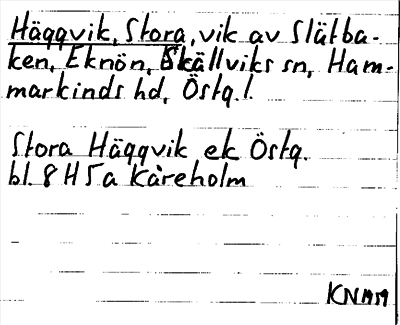 Häggvik, Stora, vik av Slätba-
ken, Eknön, Skällviks sn, Ham-
markinds hd, Östg. l.
Stora Häggvik ek Östg.
bl. 8 H 5 a Kåreholm
KNMM